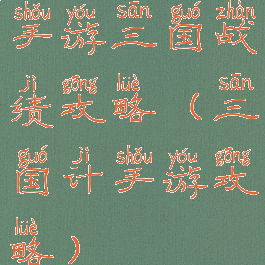 shǒu yóu sān guó zhàn
手游三国战
jì gōng lüè sān
绩攻略（三
guó jì shǒu yóu gōng
国计手游攻
lüè
略）